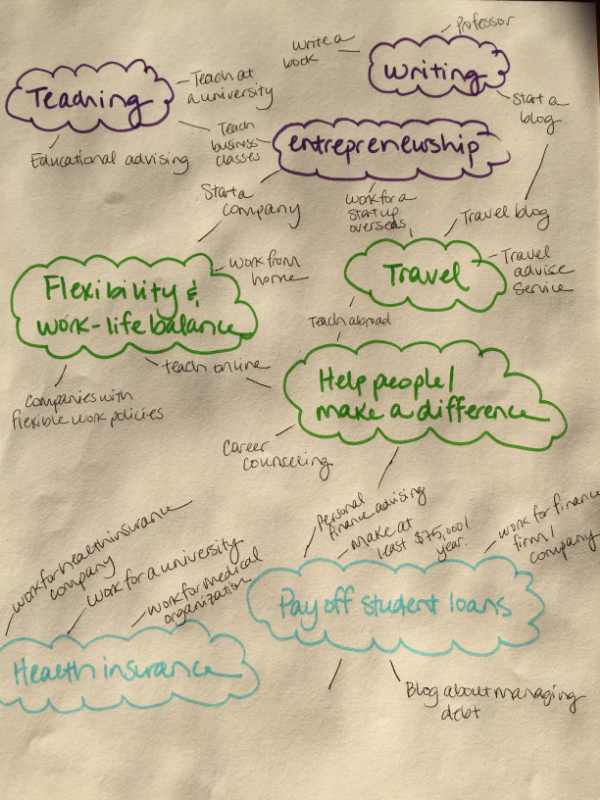 Professor
Write a
book
Writing
Teaching
Teach at
a university
Start a
blog
Teach
business
classes
entrepreneurship
Educational advising
Start a
company
Work for a
startup
overseas
Travel blog
Travel
advise
service
Travel
Work from
home
Flexibility &
work-life balance
Teach abroad
Teach online
Help people/
make a difference
Companies with
flexible work policies
Career
counseling
Personal
finance advising
Make at
least $75,000/
year.
work for finance
firm/
company
work for health insurance
company
Work for a university
work for medical
organization
Pay off student loans
Health insurance
Blog about managing
debt